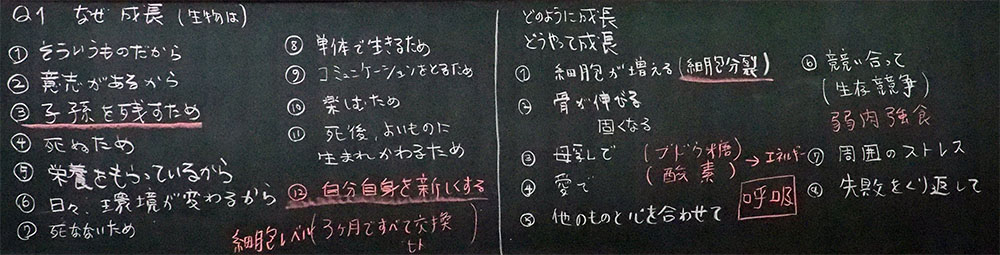 Q1 なぜ成長(生物は)
① そういうものだから
② 意志があるから
③ 子孫を残すため
④ 死ぬため
⑤ 栄養をもらっているから
⑥ 日々、環境が変わるから
⑦ 死なないため
⑧ 単体で生きるため
⑨ コミュニケーションをとるため
⑩ 楽しむため
⑪ 死後、よいものに
生まれかわるため
⑫ 自分自身を新しくする
細胞レベル(3ヶ月ですべて交換
ヒト
どのように成長
どうやって成長
① 細胞が増える(細胞分裂)
② 骨が伸びる
固くなる
③ 母乳で
④ 愛で
(ブドウ糖)
(酸素)
→エネルギー
呼吸
⑤ 他のものと心を合わせて
⑥ 競い合って
(生存競争)
弱肉強食
⑦ 周囲のストレス
失敗をくり返して